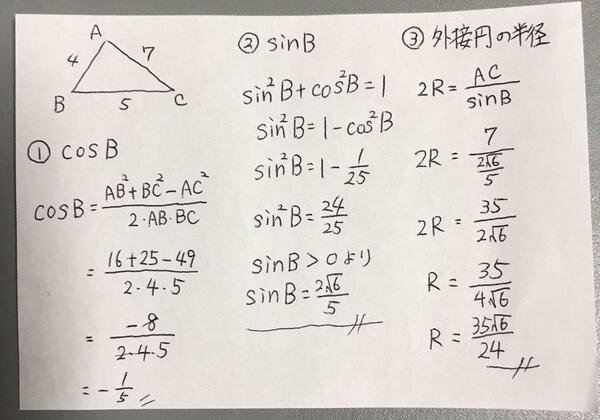 A
4
7
B
5
C
① cosB
cosB = (AB²+BC²−AC²)/(2·AB·BC)
= (16+25−49)/(2·4·5)
= −8/(2·4·5)
= −1/5
② sinB
sin²B+cos²B=1
sin²B=1−cos²B
sin²B=1−1/25
sin²B=24/25
sinB>0より
sinB=2√6/5
③ 外接円の半径
2R=AC/sinB
2R=7/(2√6/5)
2R=35/2√6
R=35/4√6
R=35√6/24